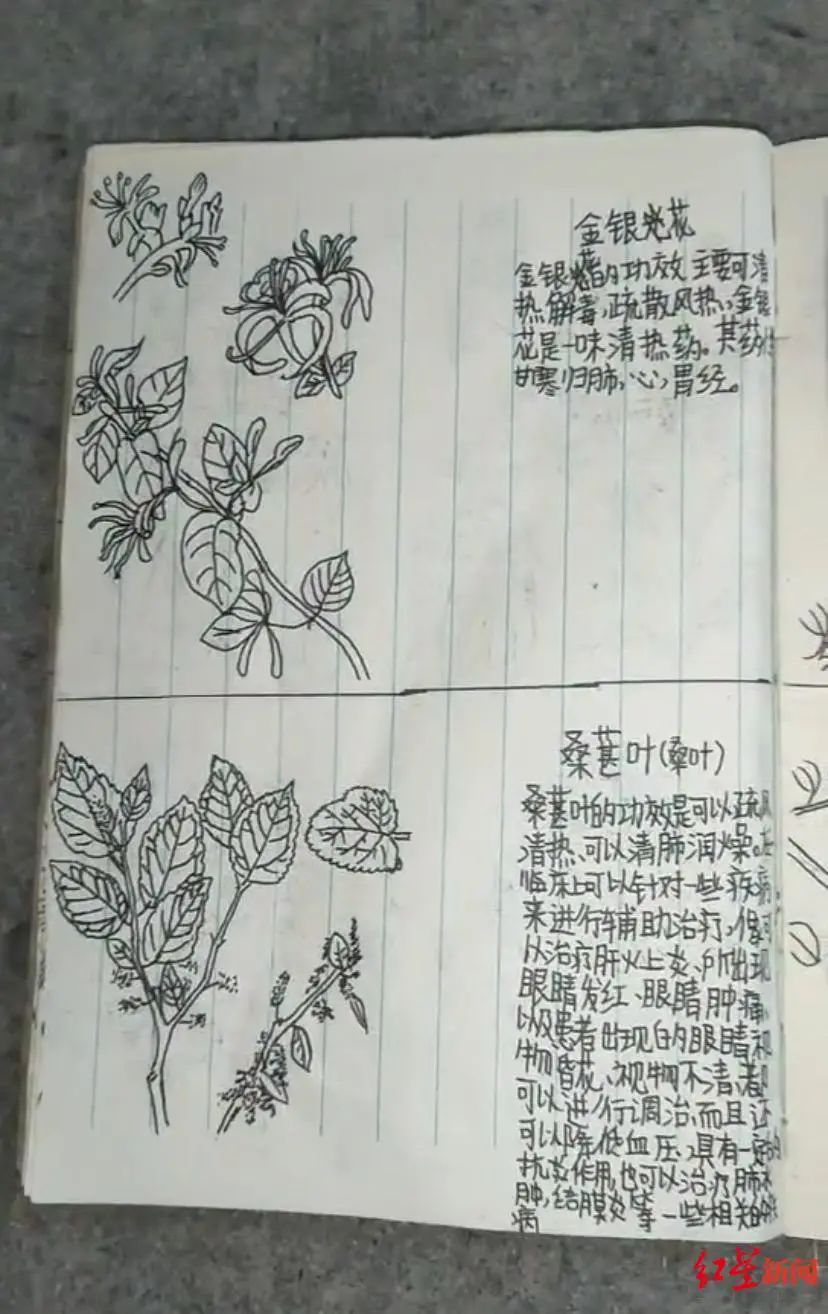 金银花
金银花的功效主要可清
热解毒,疏散风热,金银
花是一味清热药。其药性
甘寒归肺,心,胃经。
桑葚叶(桑叶)
桑葚叶的功效是可以疏风
清热、可以清肺润燥。在
临床上可以针对一些疾病,
来进行辅助治疗,像可
以治疗肝火上炎、所出现
眼睛发红、眼睛肿痛、
以及患者出现的眼睛视
物昏花、视物不清、都
可以进行调治,而且还
可以降低血压、具有一定的
抗炎作用,也可以治疗肺水
肿,结膜炎等一些相关的
病
红星新闻